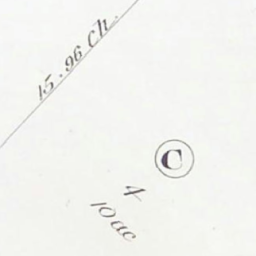 15.96 Ch.
C
4
10 ac